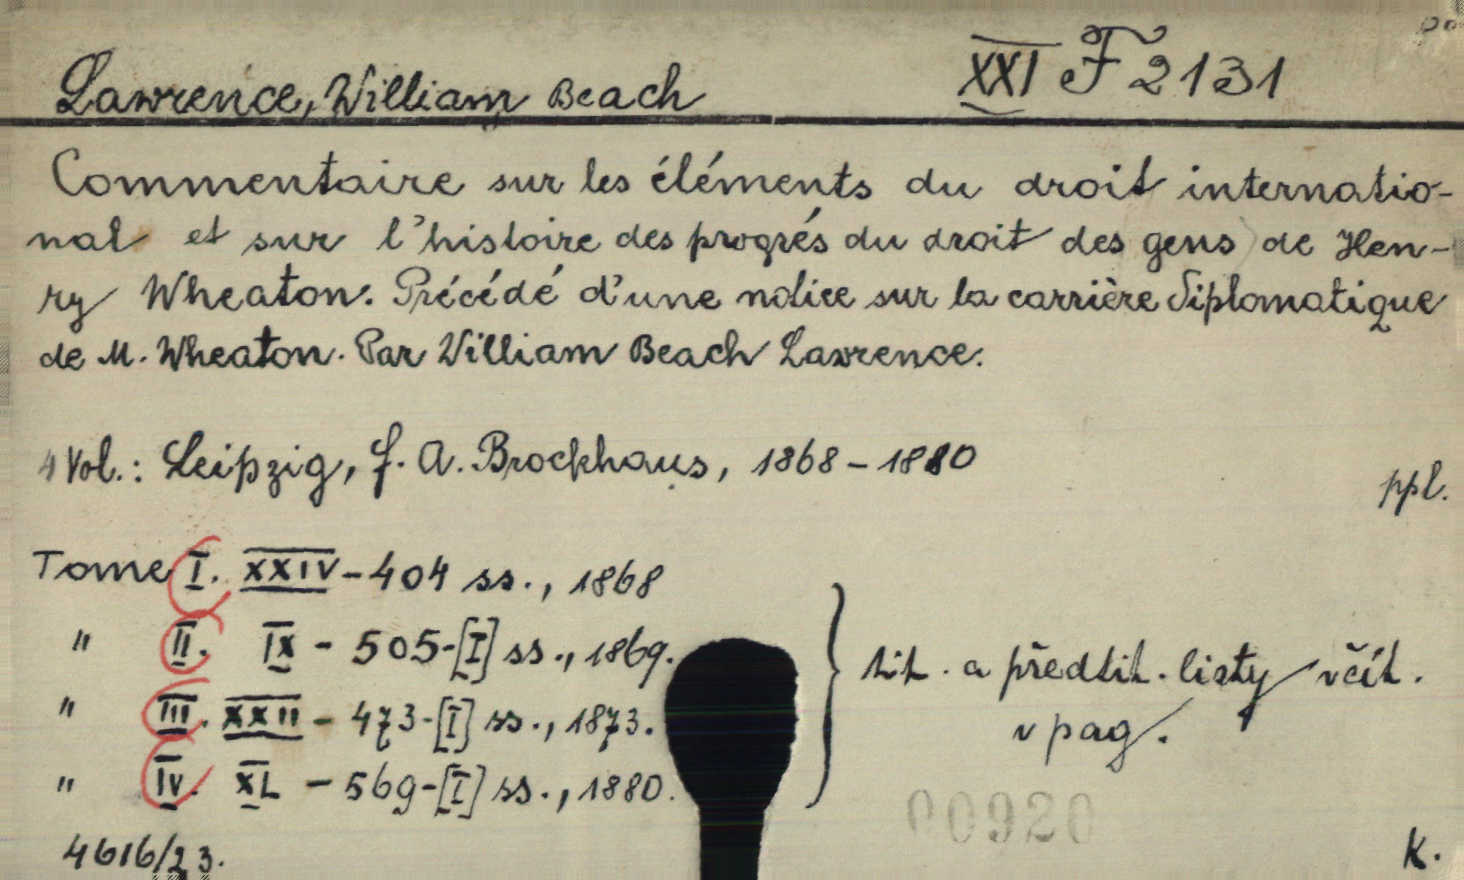 Lawrence, William Beach
XXI F 2131
Commentaire sur les éléments du droit internatio-
nal et sur l'histoire des progrés du droit des gens de Hen-
ry Wheaton. Précédé d'une notice sur la carrière diplomatique
de M. Wheaton. Par William Beach Lawrence.
4 Vol.: Leipzig, F. A. Brockhaus, 1868 - 1880
ppl.
Tome I. XXIV - 404 ss., 1868
" II. IX - 505-[I] ss., 1869.
" III. XXII - 473-[I] ss., 1873.
" IV. XL - 569-[I] ss., 1880.
tit. a předtit. listy včít.
v pag.
00920
4616/23.
K.